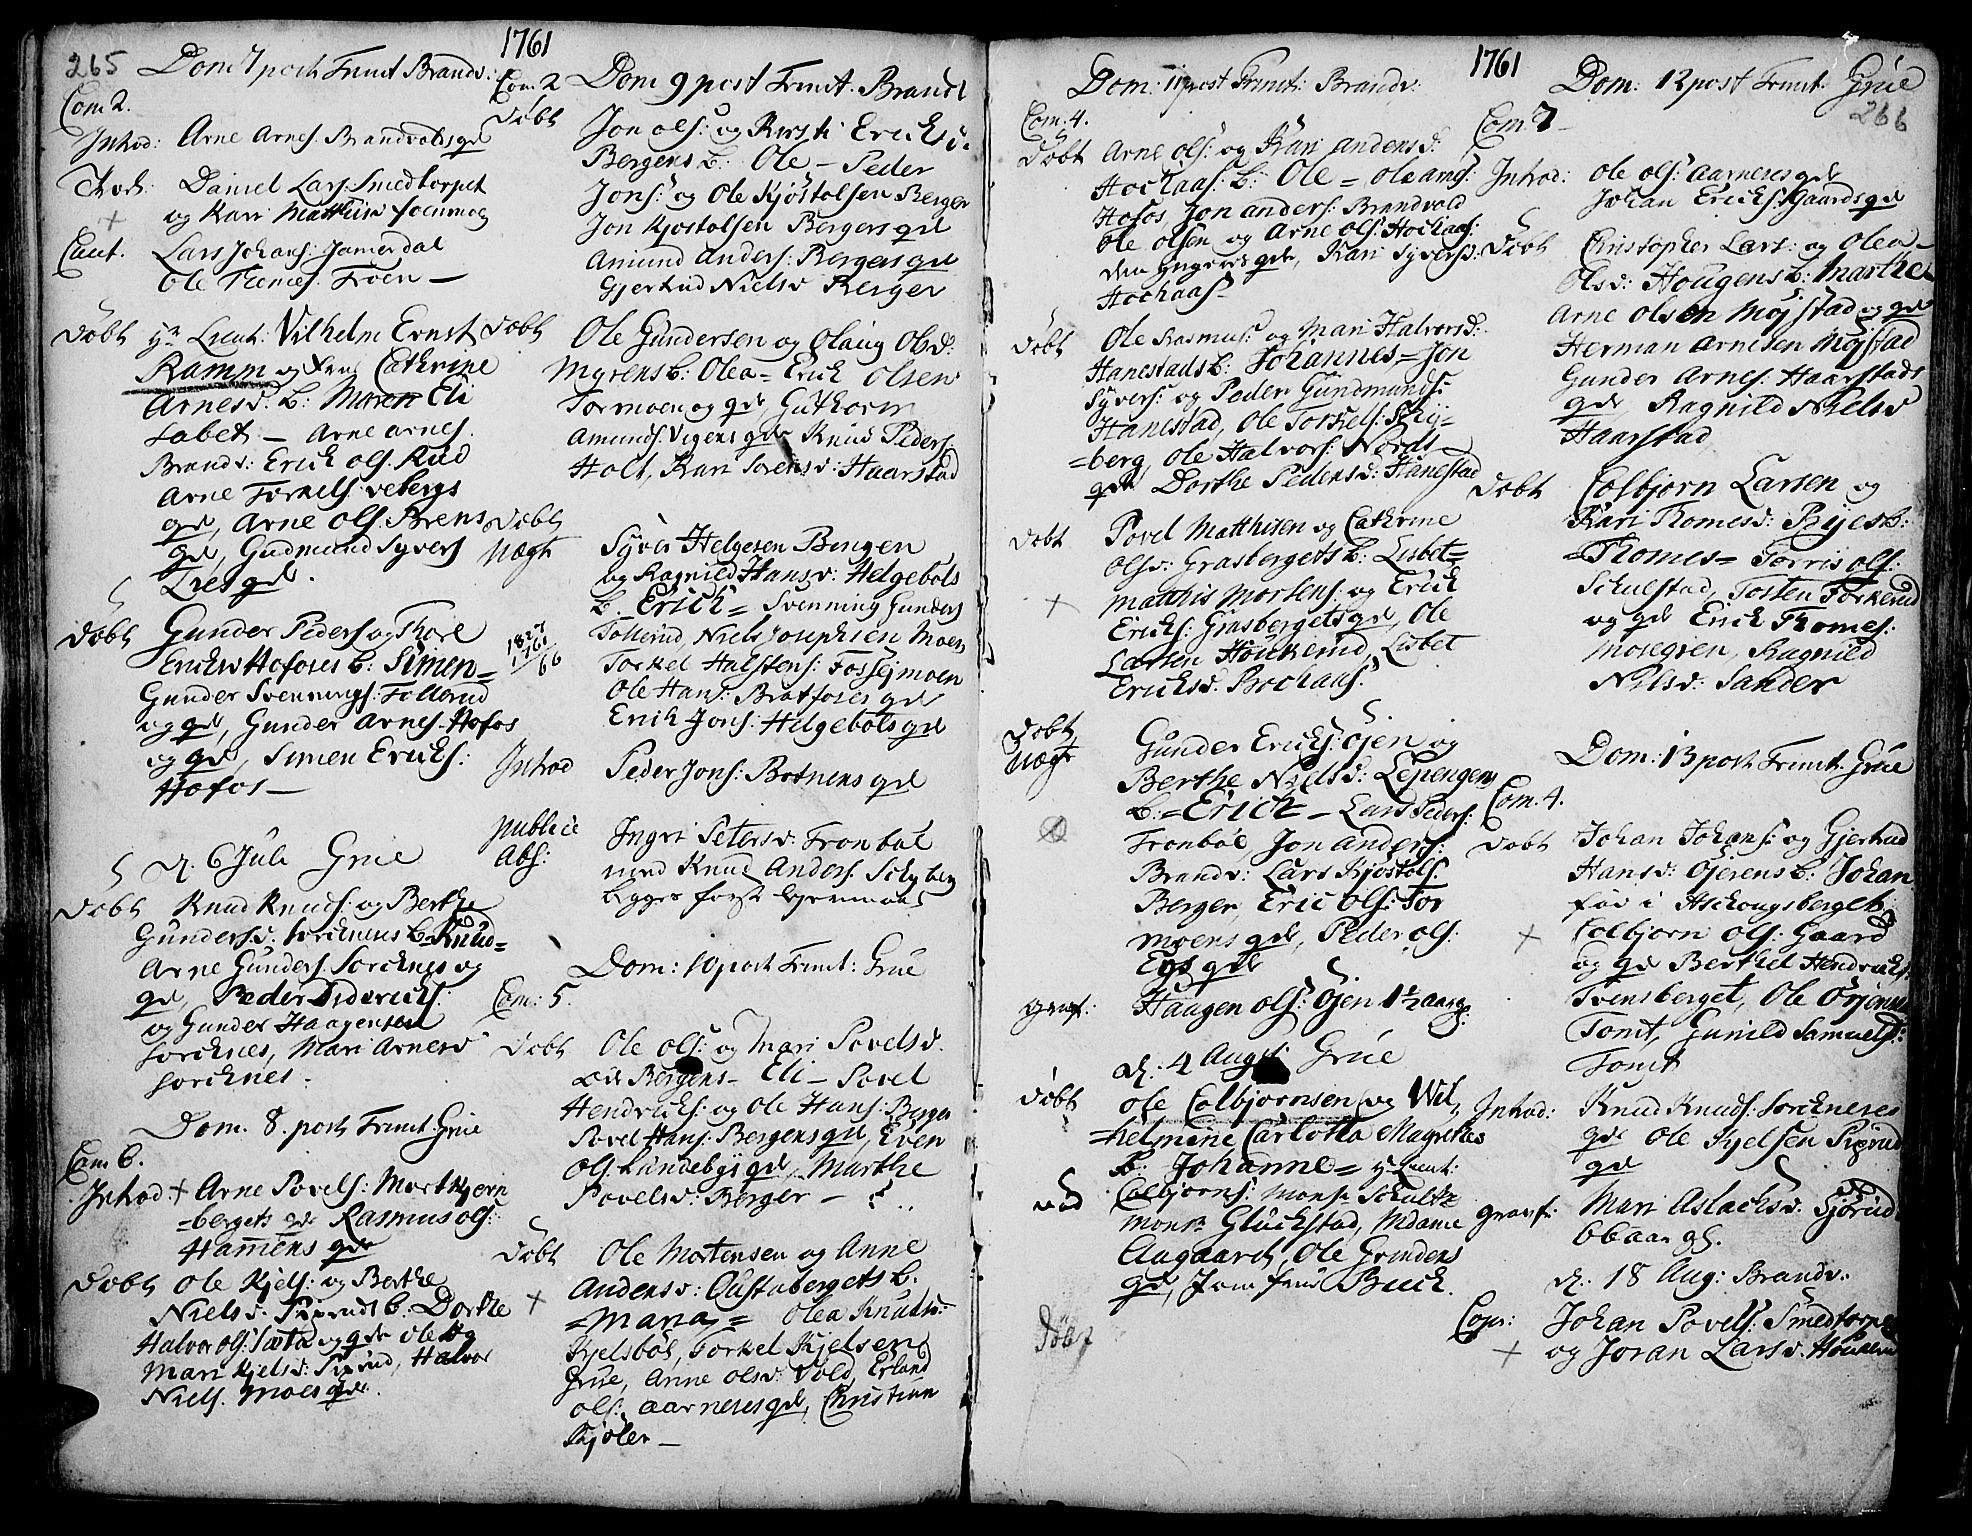 265
1761
Dom 7 post Trinit Brandv:
Com 2.
Introd: Arne Arnes. Brandvolds qde
Trod: Daniel Lars: Smedtorpet
og Kari Matthisd
Caut. Lars Johans: Jamerdal
Ole Thomes: Troen —
Döbt Hr Lieut: Vilhelm Ernst
Ramm og Frue Cathrine
Arnesd: b: Maren Eli
sabet — Arne Arnes.
Brandv: Erich Ols. Rud
Arne Torkels Vebergs
qde, Arne Ols. Brens
qde, Gudmund Syvers
Lies qde.
Döbt Gunder Peders og Thore
Ericksd Hofoses b: Simen =
Gunder Svennings: Tollerud
og qde, Gunder Arnes. Hofos
og qde, Simen Ericks:
Hofos —
d: 6 Juli Grue
Döbt Knud Knuds: og Berthe
Gundersd: Sorcknes b = Knud =
Arne Gunders. Sorcknes og
qde, Peder Didericks:
og Gunder Haagensen
Sorcknes, Mari Arnesd
Sorcknes.
Dom. 8. post Trinit: Grue
Com 6.
Introd + Arne Povels: Mortkjern
=bergets qde Rasmus ols:
Hamens qde
Döbt Ole Kjels: og Berthe
Nielsd: Pixrud b: Dorthe
Halvor ols: Sæta og qde Ole og
Mari Kjelsd: Pixrud, Halvor
Niels. Moes qde.
Com 2 Dom 9 post Trinit. Brandv
Döbt Jon ols: og Kirsti Ericksd.
Bergens b: Ole — Peder
Jons: og Ole Kjöstolsen Berger
Jon Kjöstolsen Bergers qde
Amund Anders: Bergens qde
Gjertrud Nielsd Berger
Döbt Ole Gundersen og Olaug Olsd:
Myrens b: Olea = Erich Olsen
Tormoen og qde, Guthorm
Amunds. Vigens qde Knud Peders:
Holt, Kari Sorensd: Haarstad
Döbt
Uægt Syver Helgesen Bengen
og Ragnild Hansd: Helgebols
b. Erich = Svenning Gunders
Tollerud, Niels Josephsen Moen
Torkel Halstens: Fossejmoen
Ole Hans: Bratfoses qde
Erich Jons: Helgebols qde
1827
1761
66
Introd Peder Jons: Botnens qde
publice
Abs: Ingri Petersd: Tronbøl
med Knud Anders. Schyberg
begges første Lejermaal
Dom: 10 post Trinit: Grue
Com: 5.
Döbt Ole ols: og Mari Povelsd.
Bergens — Eli — Povel
Hendricks: og Ole Hans: Berger
Povel Hans: Bergens qde, Even
Ols. Lundebyes qde, Marthe
Povelsd: Berger —
Döbt Ole Mortensen og Anne
Andersd: Oustabergets b.
+ = Maria = Olea Knudsd:
Kjelsbøl, Torkel Kjelsen
Grue, Anne Olsd: Vold, Erland
ols: Aarneses qde, Christian
Kjöler —
1761
Dom: 11 post Trinit: Brandv:
Com: 4.
Döbt Arne ols: og Kari Andersd:
Hockaas b: Ole =
Hofos, Jon Anders: Brandvold
Ole Olsen og Arne ols: Hockaas:
den yngeres qde, Kari Syversd:
Hockaas
Döbt Ole Rasmus: og Mari Halvorsd:
Hanestads b: Johannes = Jon
Syvers: og Peder Gundmunds:
Hanestad, Ole Torkels: Schy=
=berg, Ole Halvors: Nords
qde Dorthe Pedersd: Hanestad
Döbt Povel Matthisen og Cathrine
Olsd: Grasbergets b: Lisbet=
+ Matthis Mortens: og Erick
Ericks: Grasbergets qde, Ole
Larsen Houkerud, Lisbet
Ericksd. Brochaas.
Döbt
Uægt Gunder Ericks: Öjen og
Berthe Nielsd: Lepengens
b: = Erich — Lars Peders:
Tronböl, Jon Anders:
Brandv: Lars Kjöstols
Berger, Eric Ols: Tor
moens qde, Peder ols:
qde
graf: Haagen ols: Öjen 1½ aar g:
d: 4 Aug: Grue
Döbt Ole Colbjornsen og Wil,
=helmine Carlotta Magrethes
b: Johanne = Hr Lieut:
Colbjorns: Mons: Schultz
Mons: Glückstad, Mdame
Aagaard, Ole Grindens
qde, Jomfrue Buck.
Döbt
Dom: 12 post Trinit: Grue
266
Com: 7
Introd: Ole ols: Aarneses qde
Johan Ericks: Gaards qde
Döbt Christopher Lars: og Olea
Olsd: Hougens b: Marthe
Arne Olsen Möjstad og qde
Herman Arnesen Möjstad
Gunder Arnes: Haarstads
qde, Ragnild Nielsd
Haarstad,
Döbt Colbjorn Larsen og
Kari Thomesd: Ryes b:
=Thomes = Torris ols:
Schulstad, Tosten Torkerud
og qde Erich Thomes:
Mosegren, Ragnild
Nilsd: Sander
Dom: 13 post Trinit: Grue
Com: 4.
Döbt Johan Johans: og Gjertrud
Hansd: Öjerens b: Johan
föd i Aschougsberget.
+ Colbjorn ols: Gaard
og qde Berthel Hendricks:
Svensberget, Ole Örjens
Tomt, Gunild Samuels:
Tomt
Introd: Knud Knuds: Sorckneses
qde Ole Kjelsen Pixrud
qde
graf: Mari Aslacksd. Sjörud
66 aar gl.
d: 18 Aug: Brandv:
Cop: Johan Povels: Smedtorpet
+ og Joran Larsd: Houkerud